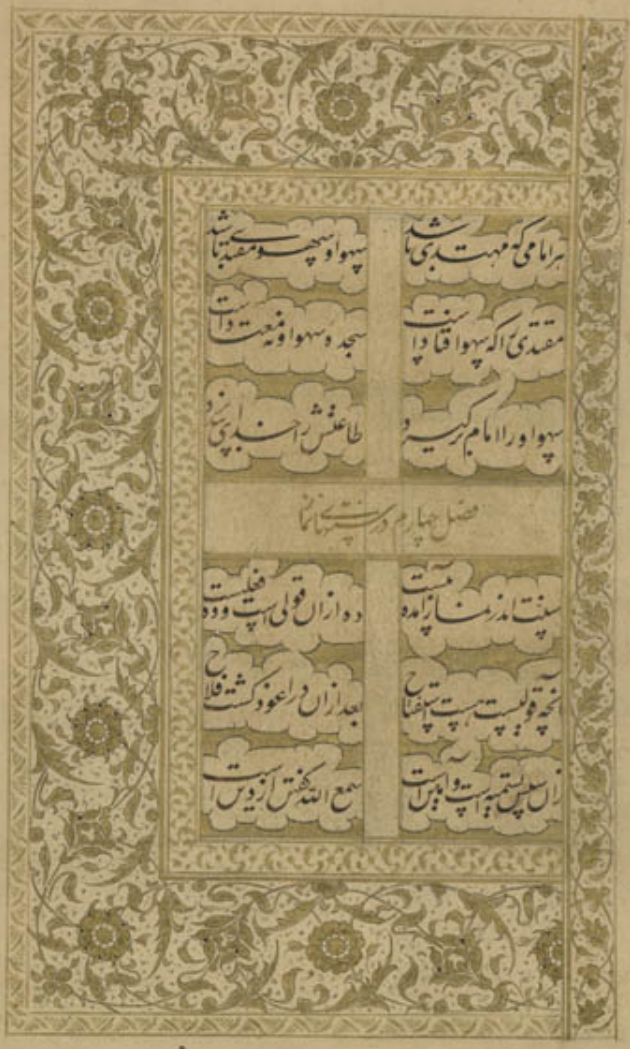 هر امامی که مهتدی باشد
سهو او سهو مقتدی باشد
مقتدی را که سهو افتادست
سجده سهو او نه معتادست
سهو او را امام برگیرد
طاعتش را خدای
فصل چهارم در سنتهای نماز
سنت اندر نماز آمده بیست
ده ازان قولی است و ده فعلیست
آنچه قولیست هست استفتاح
بعد ازان در اعوذ گشت فلاح
زان سپس تسمیه است و آمین است
سمع الله گفتن از دین است